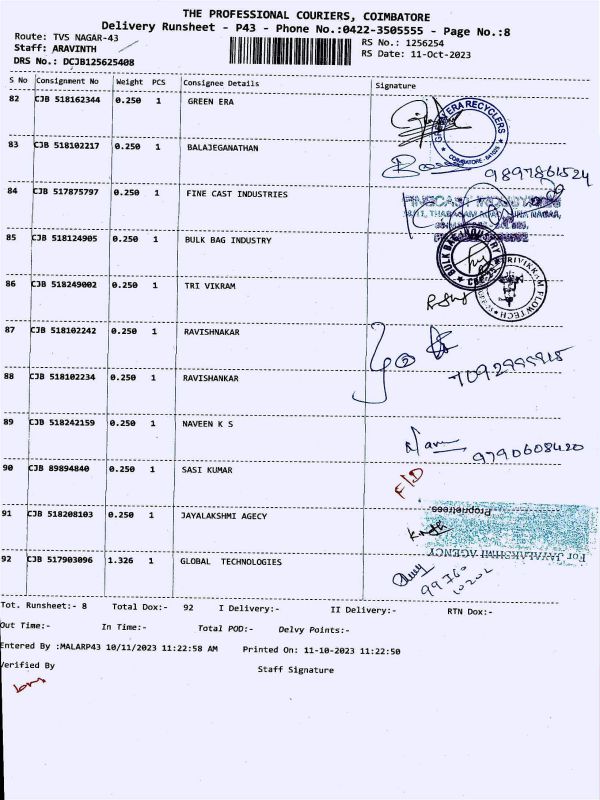 THE PROFESSIONAL COURIERS, COIMBATORE
Delivery Runsheet - P43 - Phone No.:0422-3505555 - Page No.:8
Route: TVS NAGAR-43
RS No.: 1256254
Staff: ARAVINTH
RS Date: 11-Oct-2023
DRS No.: DCJB125625408
S No Consignment No Weight PCS Consignee Details Signature
82 CJB 518162344 0.250 1 GREEN ERA
GREEN ERA RECYCLERS
COIMBATORE
83 CJB 518102217 0.250 1 BALAJEGANATHAN
84 CJB 517875797 0.250 1 FINE CAST INDUSTRIES
85 CJB 518124905 0.250 1 BULK BAG INDUSTRY
BULK BAG INDUSTRY
86 CJB 518249002 0.250 1 TRI VIKRAM
TRIVIKRAM FLOWTECH
87 CJB 518102242 0.250 1 RAVISHNAKAR
88 CJB 518102234 0.250 1 RAVISHANKAR
89 CJB 518242159 0.250 1 NAVEEN K S
9790608420
90 CJB 89894840 0.250 1 SASI KUMAR
91 CJB 518208103 0.250 1 JAYALAKSHMI AGECY
Proprietress.
For JAYALAKSHMI AGENCY
92 CJB 517903096 1.326 1 GLOBAL TECHNOLOGIES
99760
10202
Tot. Runsheet:- 8 Total Dox:- 92 I Delivery:- II Delivery:- RTN Dox:-
Out Time:- In Time:- Total POD:- Delvy Points:-
Entered By :MALARP43 10/11/2023 11:22:58 AM Printed On: 11-10-2023 11:22:50
Verified By Staff Signature